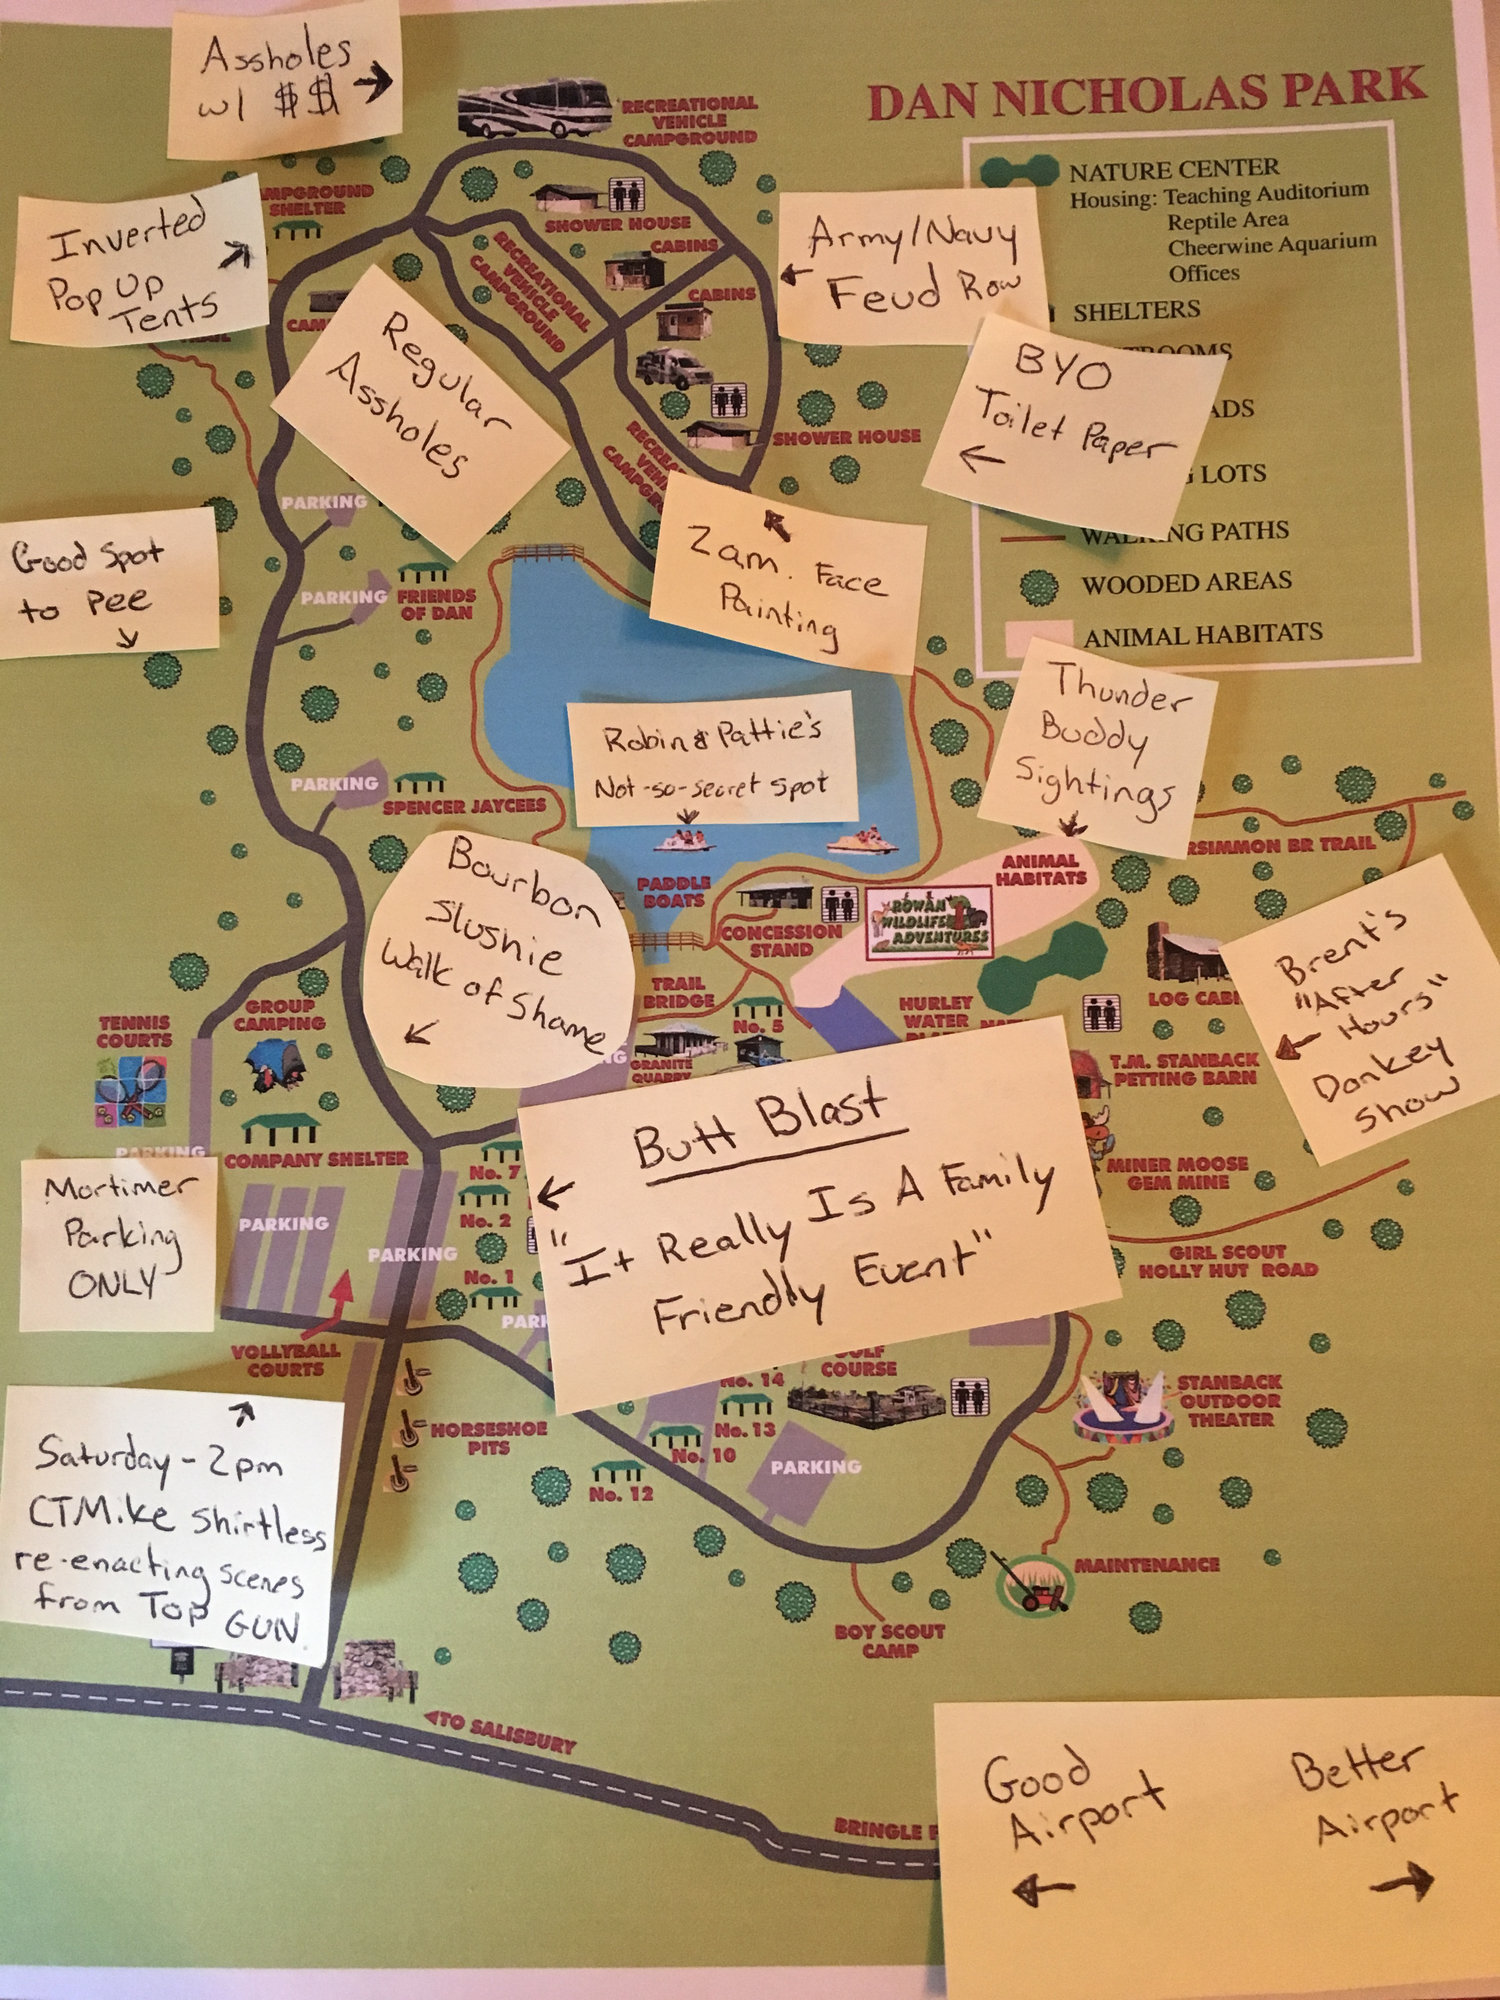 Assholes
w/ $$
DAN NICHOLAS PARK
RECREATIONAL
VEHICLE
CAMPGROUND
NATURE CENTER
Housing: Teaching Auditorium
Reptile Area
Cheerwine Aquarium
Offices
SHELTERS
LOTS
WALKING PATHS
WOODED AREAS
ANIMAL HABITATS
SHELTER
Inverted
Pop Up
Tents
SHOWER HOUSE
CABINS
RECREATIONAL
VEHICLE
CAMPGROUND
CABINS
Army/Navy
Feud Row
Regular
Assholes
BYO
Toilet Paper
SHOWER HOUSE
PARKING
Good Spot
to Pee
2am. Face
Painting
PARKING
FRIENDS
OF DAN
Robin & Pattie's
Not-so-secret spot
Thunder
Buddy
Sightings
PARKING
SPENCER JAYCEES
BR TRAIL
ANIMAL
HABITATS
Bourbon
Slushie
Walk of Shame
PADDLE
BOATS
CONCESSION
STAND
ROWAN
WILDLIFE
ADVENTURES
Brent's
"After
Hours"
Donkey
Show
TRAIL
BRIDGE
No. 5
HURLEY
WATER
LOG
GRANITE
QUARRY
TENNIS
COURTS
GROUP
CAMPING
T.M. STANBACK
PETTING BARN
PARKING
COMPANY SHELTER
MINER MOOSE
GEM MINE
Butt Blast
"It Really Is A Family
Friendly Event"
Mortimer
Parking
ONLY
PARKING
PARKING
No. 7
No. 2
No. 1
GIRL SCOUT
HOLLY HUT ROAD
VOLLYBALL
COURTS
COURSE
No. 14
No. 13
No. 10
No. 12
PARKING
HORSESHOE
PITS
STANBACK
OUTDOOR
THEATER
Saturday - 2pm
CTMike shirtless
re-enacting scenes
from Top GUN.
MAINTENANCE
BOY SCOUT
CAMP
TO SALISBURY
BRINGLE
Good
Airport
Better
Airport